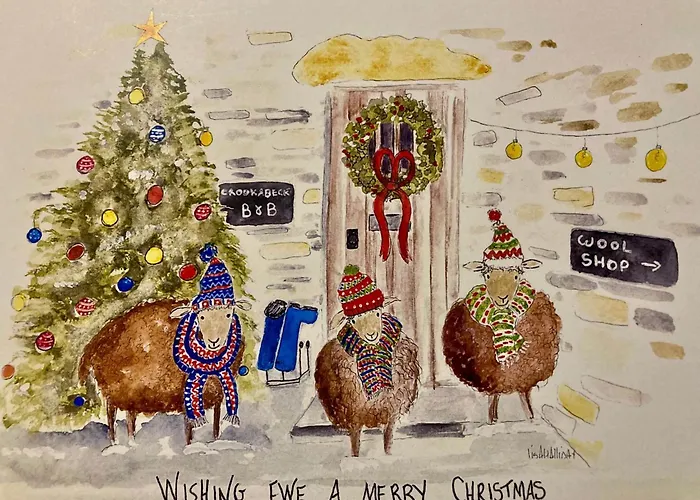 CROOKABECK
B&B
WOOL
SHOP →
WISHING EWE A MERRY CHRISTMAS